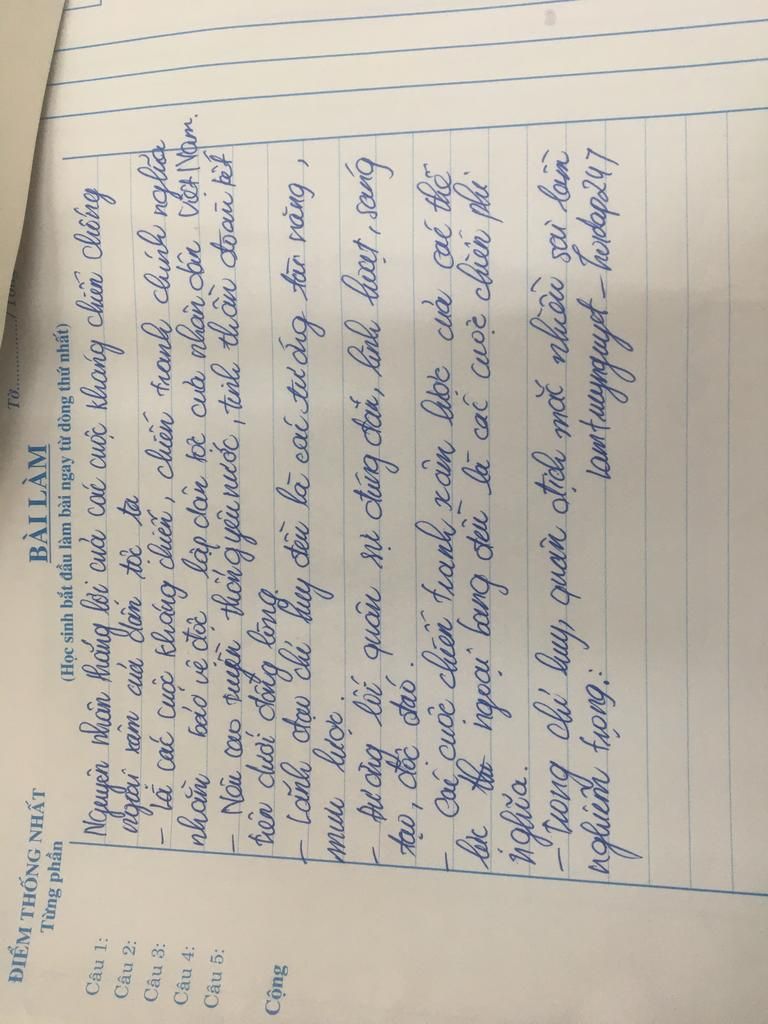 Tờ............../ Tổng
ĐIỂM THỐNG NHẤT
Từng phần
Câu 1:
Câu 2:
Câu 3:
Câu 4:
Câu 5:
Cộng
BÀI LÀM
(Học sinh bắt đầu làm bài ngay từ dòng thứ nhất)
Nguyên nhân thắng lợi của các cuộc kháng chiến chống
ngoại xâm của dân tộc ta
- Là các cuộc kháng chiến, chiến tranh chính nghĩa
nhằm bảo vệ độc lập dân tộc của nhân dân Việt Nam.
- Nêu cao truyền thống yêu nước, tinh thần đoàn kết
trên dưới đồng lòng.
- Lãnh đạo chỉ huy đều là các tướng tài năng,
mưu lược.
- Đường lối quân sự đúng đắn, linh hoạt, sáng
tạo, độc đáo.
- Các cuộc chiến tranh xâm lược của các thế
lực ngoại bang đều là các cuộc chiến phi
nghĩa.
- Trong chỉ huy, quân địch mắc nhiều sai lầm
nghiêm trọng.
lamtuynguyet - hoidap247